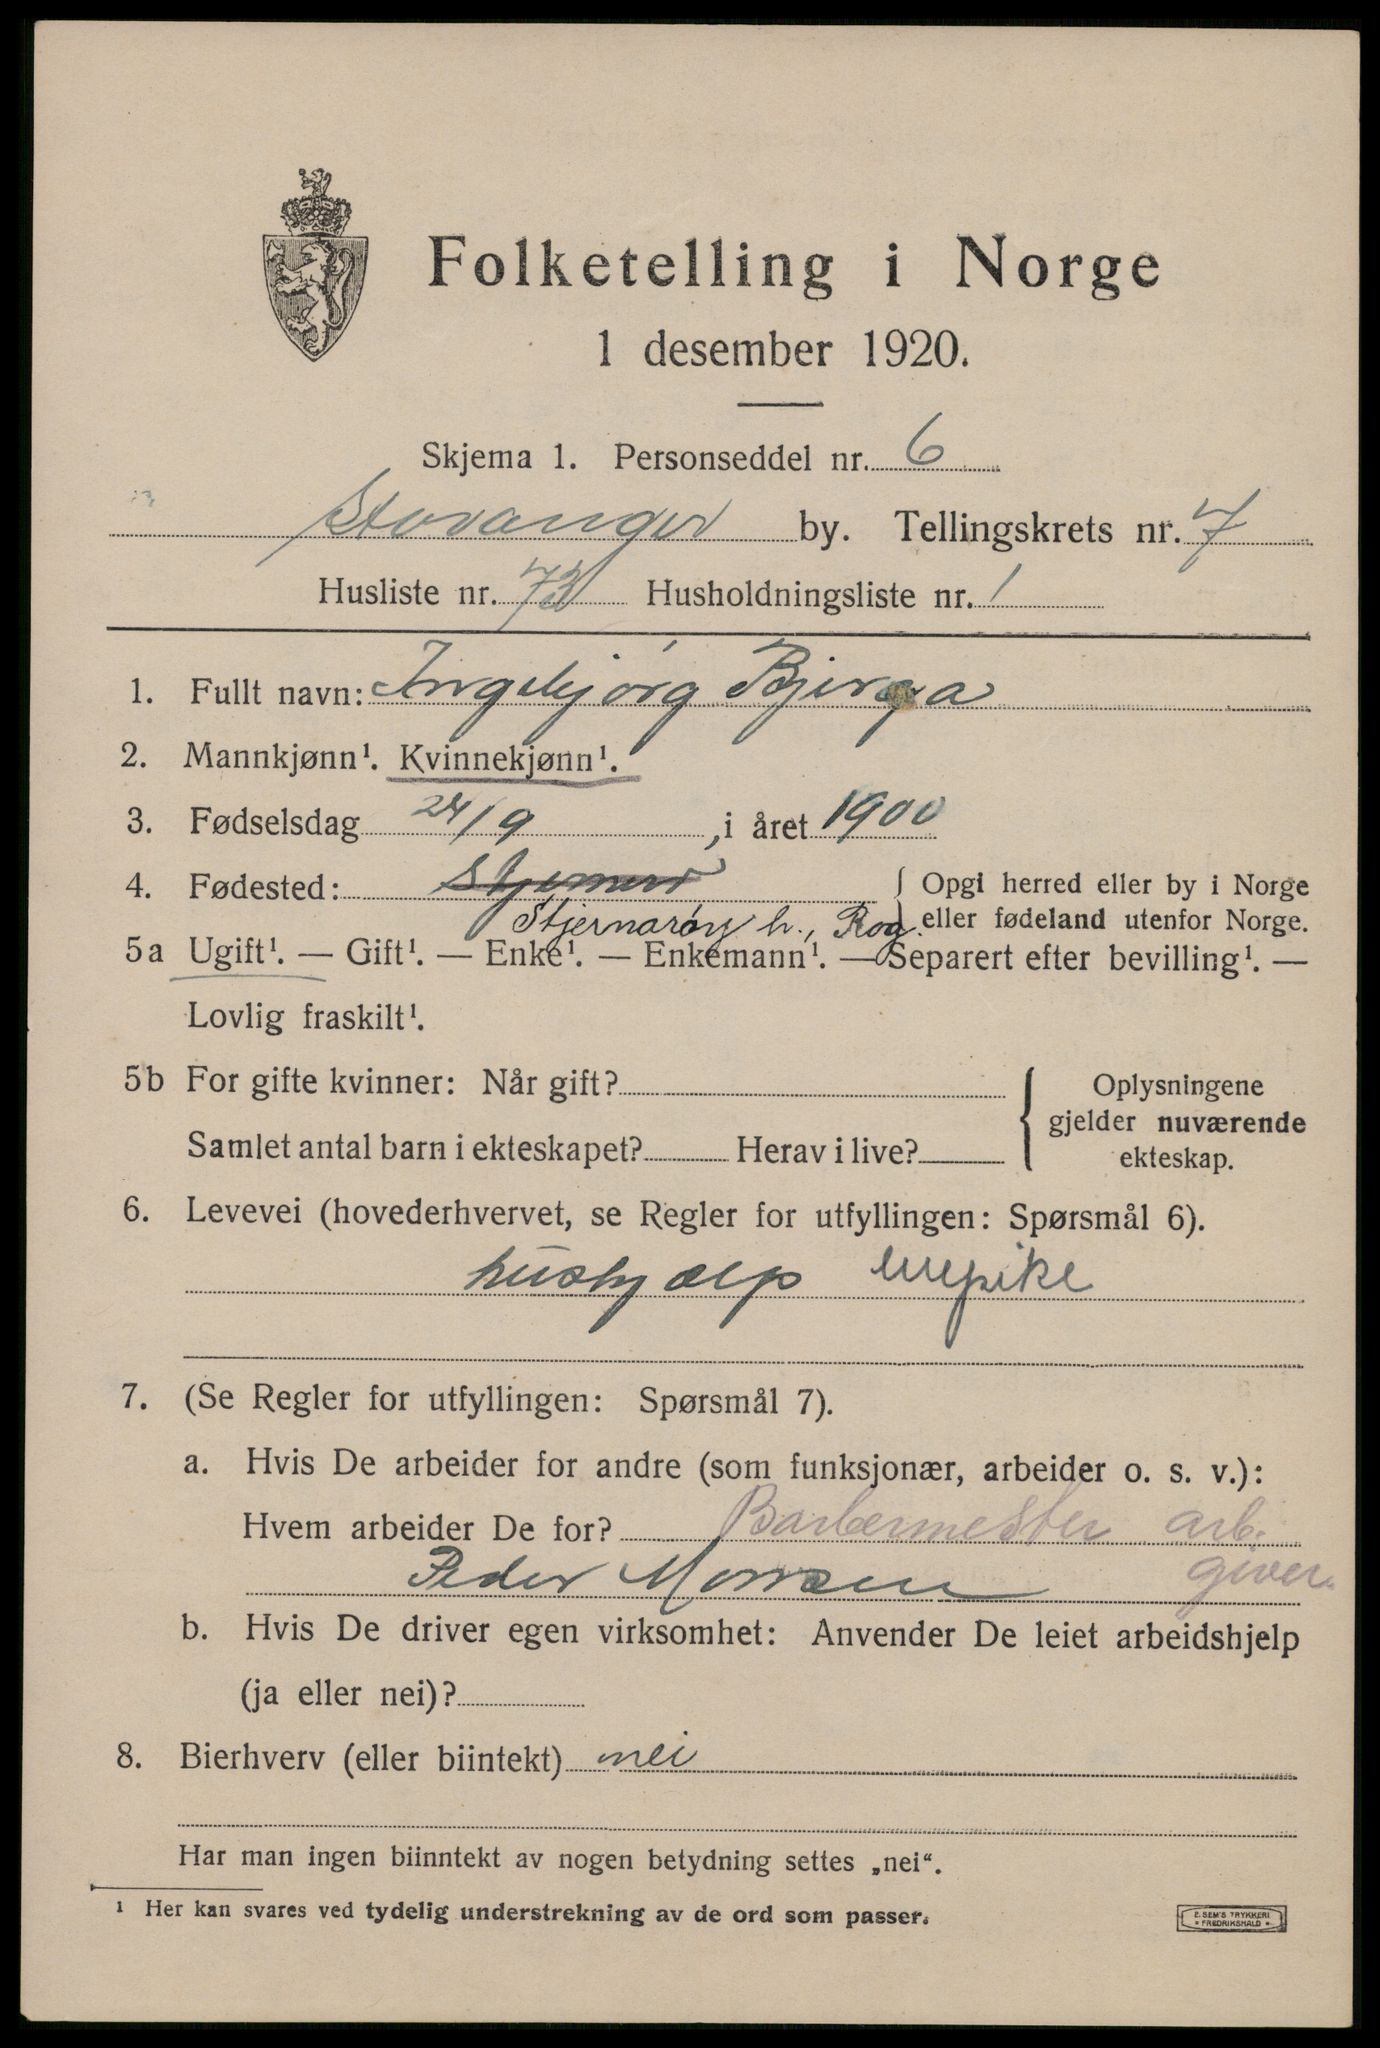 Folketelling i Norge
1 desember 1920.
Skjema 1. Personseddel nr. 6
Stavanger by. Tellingskrets nr. 7
Husliste nr. 73 Husholdningsliste nr. 1
1. Fullt navn: Ingebjørg Bjerga
2. Mannkjønn¹. Kvinnekjønn¹.
3. Fødselsdag 24/9, i året 1900
4. Fødested: { Opgi herred eller by i Norge
Stjernarøy h., Rog. eller fødeland utenfor Norge.
5a Ugift¹. — Gift¹. — Enke¹. — Enkemann¹. — Separert efter bevilling¹. —
Lovlig fraskilt¹.
5b For gifte kvinner: Når gift? { Oplysningene
gjelder nuværende
Samlet antal barn i ekteskapet? Herav i live?
ekteskap.
6. Levevei (hovederhvervet, se Regler for utfyllingen: Spørsmål 6).
hushjælp enepike
7. (Se Regler for utfyllingen: Spørsmål 7).
a. Hvis De arbeider for andre (som funksjonær, arbeider o. s. v.):
Hvem arbeider De for? Barbermester arb.
Peder giver.
b. Hvis De driver egen virksomhet: Anvender De leiet arbeidshjelp
(ja eller nei)?
8. Bierhverv (eller biintekt) nei
Har man ingen biinntekt av nogen betydning settes „nei“.
¹ Her kan svares ved tydelig understrekning av de ord som passer.
E. SEM'S TRYKKERI
* FREDRIKSHALD *